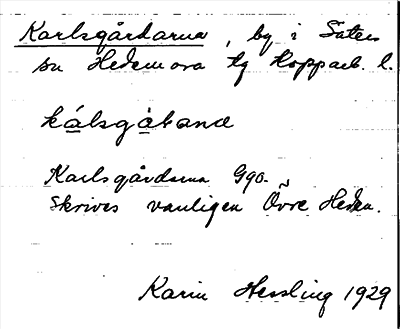 Karlsgårdarna, by i Säters
sn Hedemora tg Kopparb. l.
kálsgàɫanạ
Karlsgårdarna Ggo.
Skrives vanligen Övre Heden.
Karin Hessling 1929